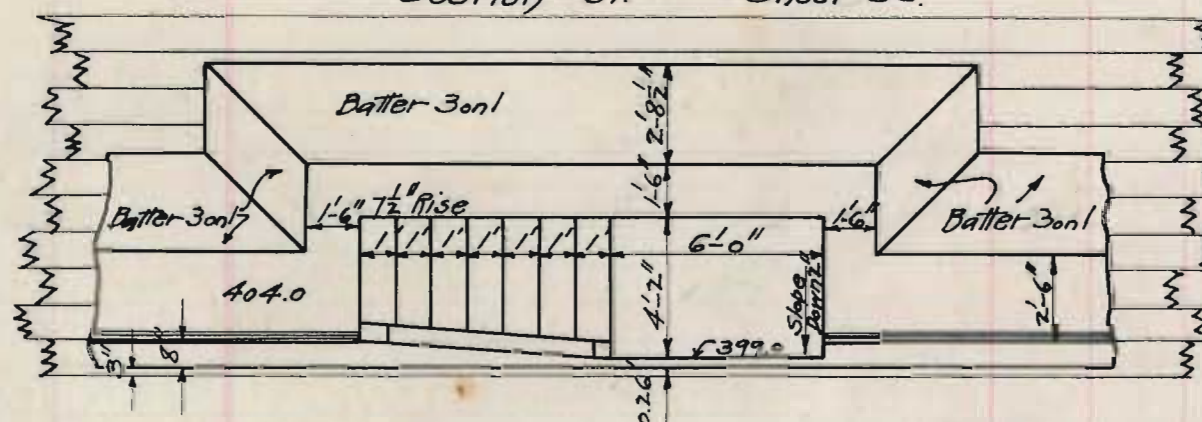 Batter 3 on 1
2'-8½"
1'-6"
Batter 3 on 1
1'-6"
7½" Rise
1' 1' 1' 1' 1' 1' 1'
6'-0"
1'-6"
Batter 3 on 1
404.0
4'-2"
Slope Down 2"
2'-6"
399.0
3"
8"
0.26